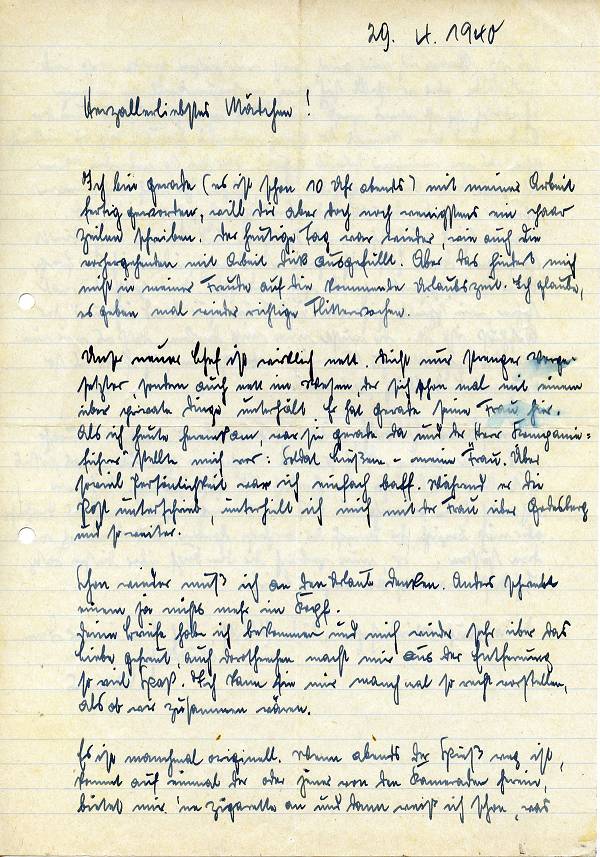 29. 4. 1940
Herzallerliebstes Mädchen!
Ich bin gerade (es ist schon 10 Uhr abends) mit meiner Arbeit
fertig geworden, will Dir aber doch noch wenigstens ein paar
Zeilen schreiben. Der heutige Tag war wieder, wie auch die
vorhergehenden mit Arbeit dick ausgefüllt. Aber das hindert mich
nicht in meiner Freude auf die kommende Urlaubszeit. Ich glaube,
es geben mal wieder richtige Flitterwochen.
Unser neuer Chef ist wirklich nett. Nicht nur strenger Vorge-
setzter, sondern auch nett im Wesen, der sich schon mal mit einem
über private Dinge unterhält. Er hat gerade seine Frau hier.
Als ich heute hereinkam, war sie gerade da und der "Herr Kompanie=
führer" stellte mich vor: Soldat - meine Frau. Über
soviel Persönlichkeit war ich einfach baff. Während er die
Post unterschrieb, unterhielt ich mich mit der Frau über Godesberg
und so weiter.
Schon wieder muß ich an den Urlaub denken. Anders schwebt
einem ja nichts mehr im Kopf.
Deine Briefe habe ich bekommen und mich wieder sehr über das
Liebe gefreut, auch macht mir aus der Entfernung
so viel Spaß. Ich kann sie mir manchmal so recht vorstellen,
als ob wir zusammen wären.
Es ist manchmal originell. Wenn abends der Spieß weg ist,
kommt auf einmal der oder jener von den Kameraden herein,
bietet mir 'ne Zigarette an und dann weiß ich schon, was